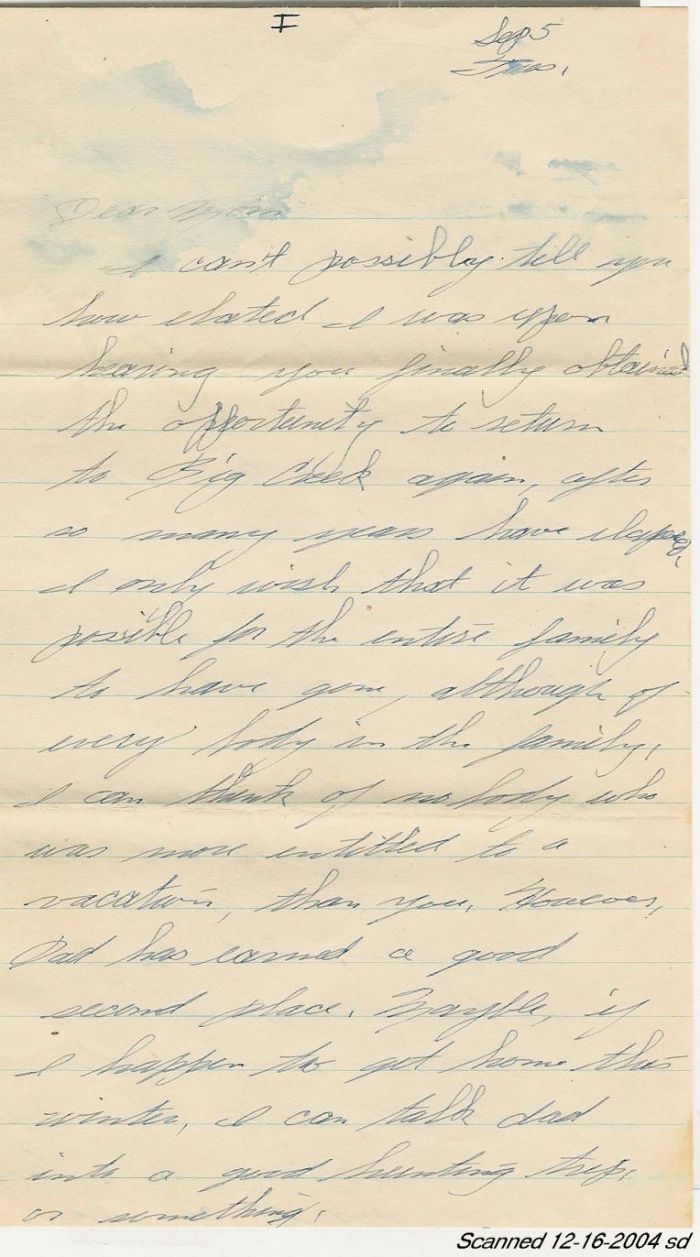 I
Sep 5
Tues.
Dear Mom
I can't possibly tell you
how elated I was upon
hearing you finally obtained
the opportunity to return
to Big Creek again, after
so many years have elapsed.
I only wish that it was
possible for the entire family
to have gone, although of
every body in the family,
I can think of no body who
was more entitled to a
vacation, than you. However,
Dad has earned a good
second place. Mayble, if
I happen to get home this
winter, I can talk dad
into a good hunting trip,
or something.
Scanned 12-16-2004 sd